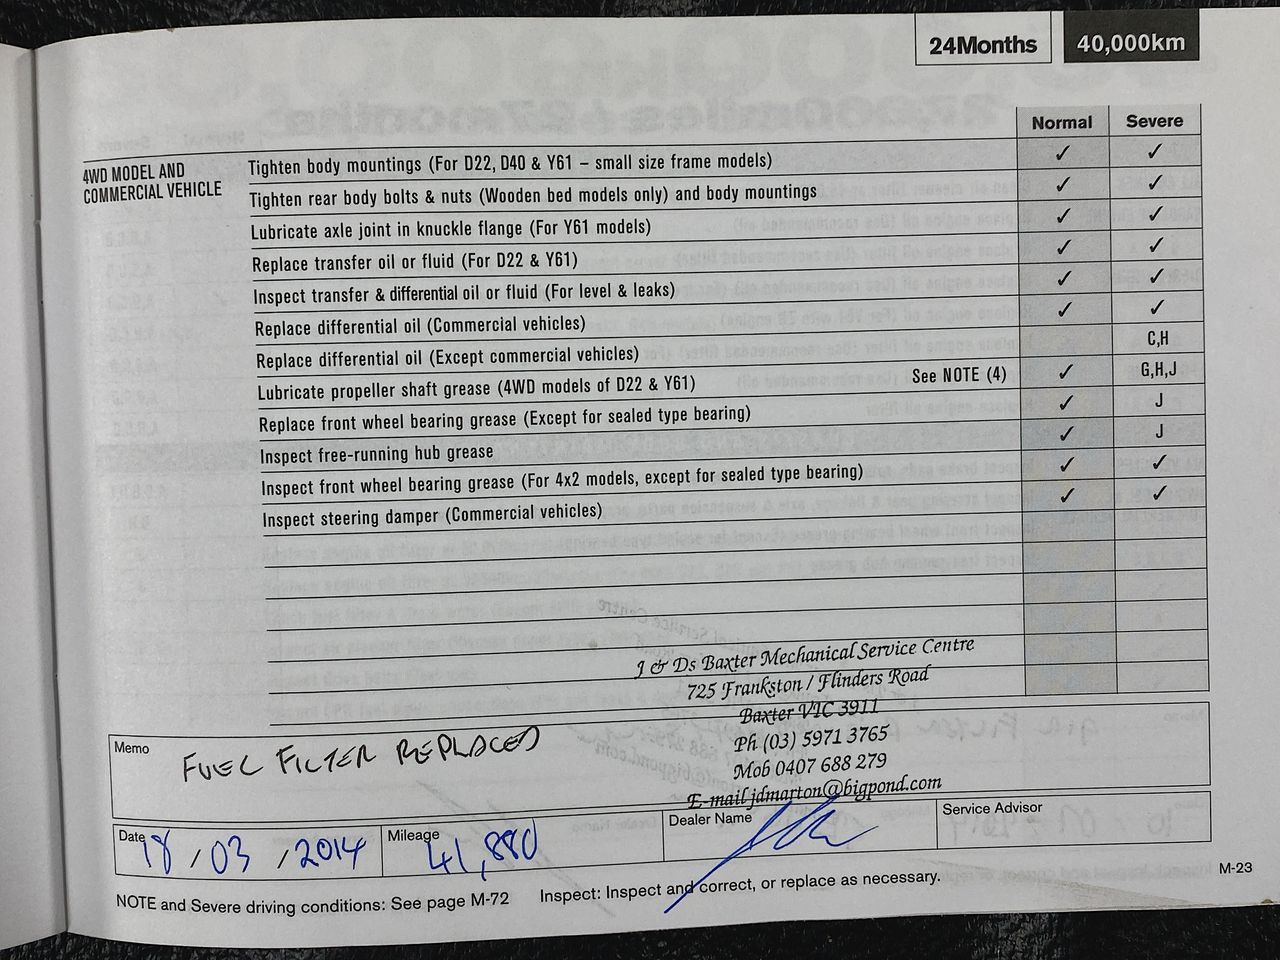 24Months 40,000km
Normal Severe
4WD MODEL AND
COMMERCIAL VEHICLE
Tighten body mountings (For D22, D40 & Y61 – small size frame models) ✓ ✓
Tighten rear body bolts & nuts (Wooden bed models only) and body mountings ✓ ✓
Lubricate axle joint in knuckle flange (For Y61 models) ✓ ✓
Replace transfer oil or fluid (For D22 & Y61) ✓ ✓
Inspect transfer & differential oil or fluid (For level & leaks) ✓ ✓
Replace differential oil (Commercial vehicles) ✓ ✓
Replace differential oil (Except commercial vehicles) C,H
Lubricate propeller shaft grease (4WD models of D22 & Y61) See NOTE (4) ✓ G,H,J
Replace front wheel bearing grease (Except for sealed type bearing) ✓ J
Inspect free-running hub grease ✓ J
Inspect front wheel bearing grease (For 4x2 models, except for sealed type bearing) ✓ ✓
Inspect steering damper (Commercial vehicles) ✓ ✓
J & Ds Baxter Mechanical Service Centre
725 Frankston / Flinders Road
Baxter VIC 3911
Ph (03) 5971 3765
Mob 0407 688 279
E-mail jdmarton@bigpond.com
Memo FUEL FILTER REPLACED
Date 18 / 03 / 2014 Mileage 41,880 Dealer Name Service Advisor
NOTE and Severe driving conditions: See page M-72 Inspect: Inspect and correct, or replace as necessary.
M-23